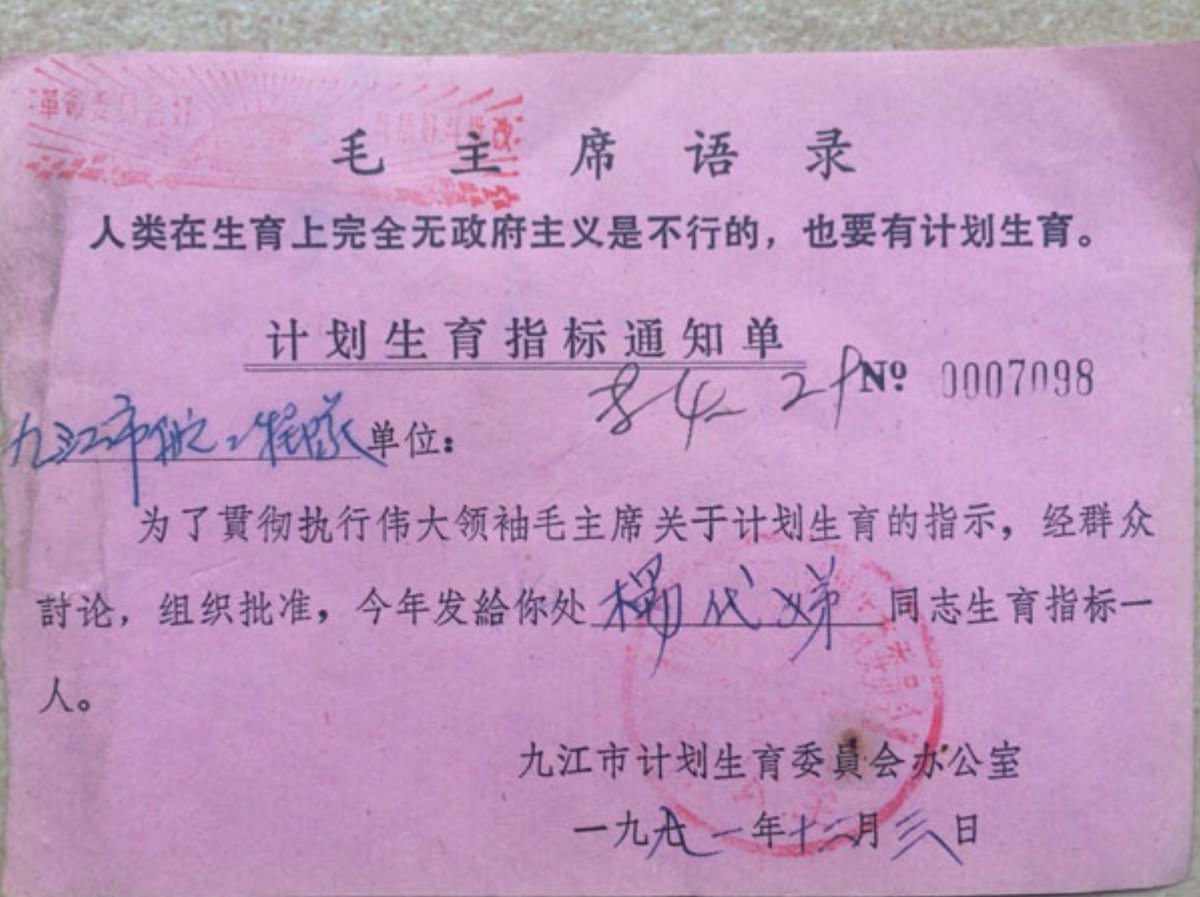 革命委员会好
毛主席语录
人类在生育上完全无政府主义是不行的，也要有计划生育。
计划生育指标通知单
№ 0007098
九江市航工程队单位：
为了貫彻执行伟大领袖毛主席关于计划生育的指示，经群众
討论，组织批准，今年发給你处杨代娣同志生育指标一
人。
九江市计划生育委員会办公室
一九七一年十二月三八日